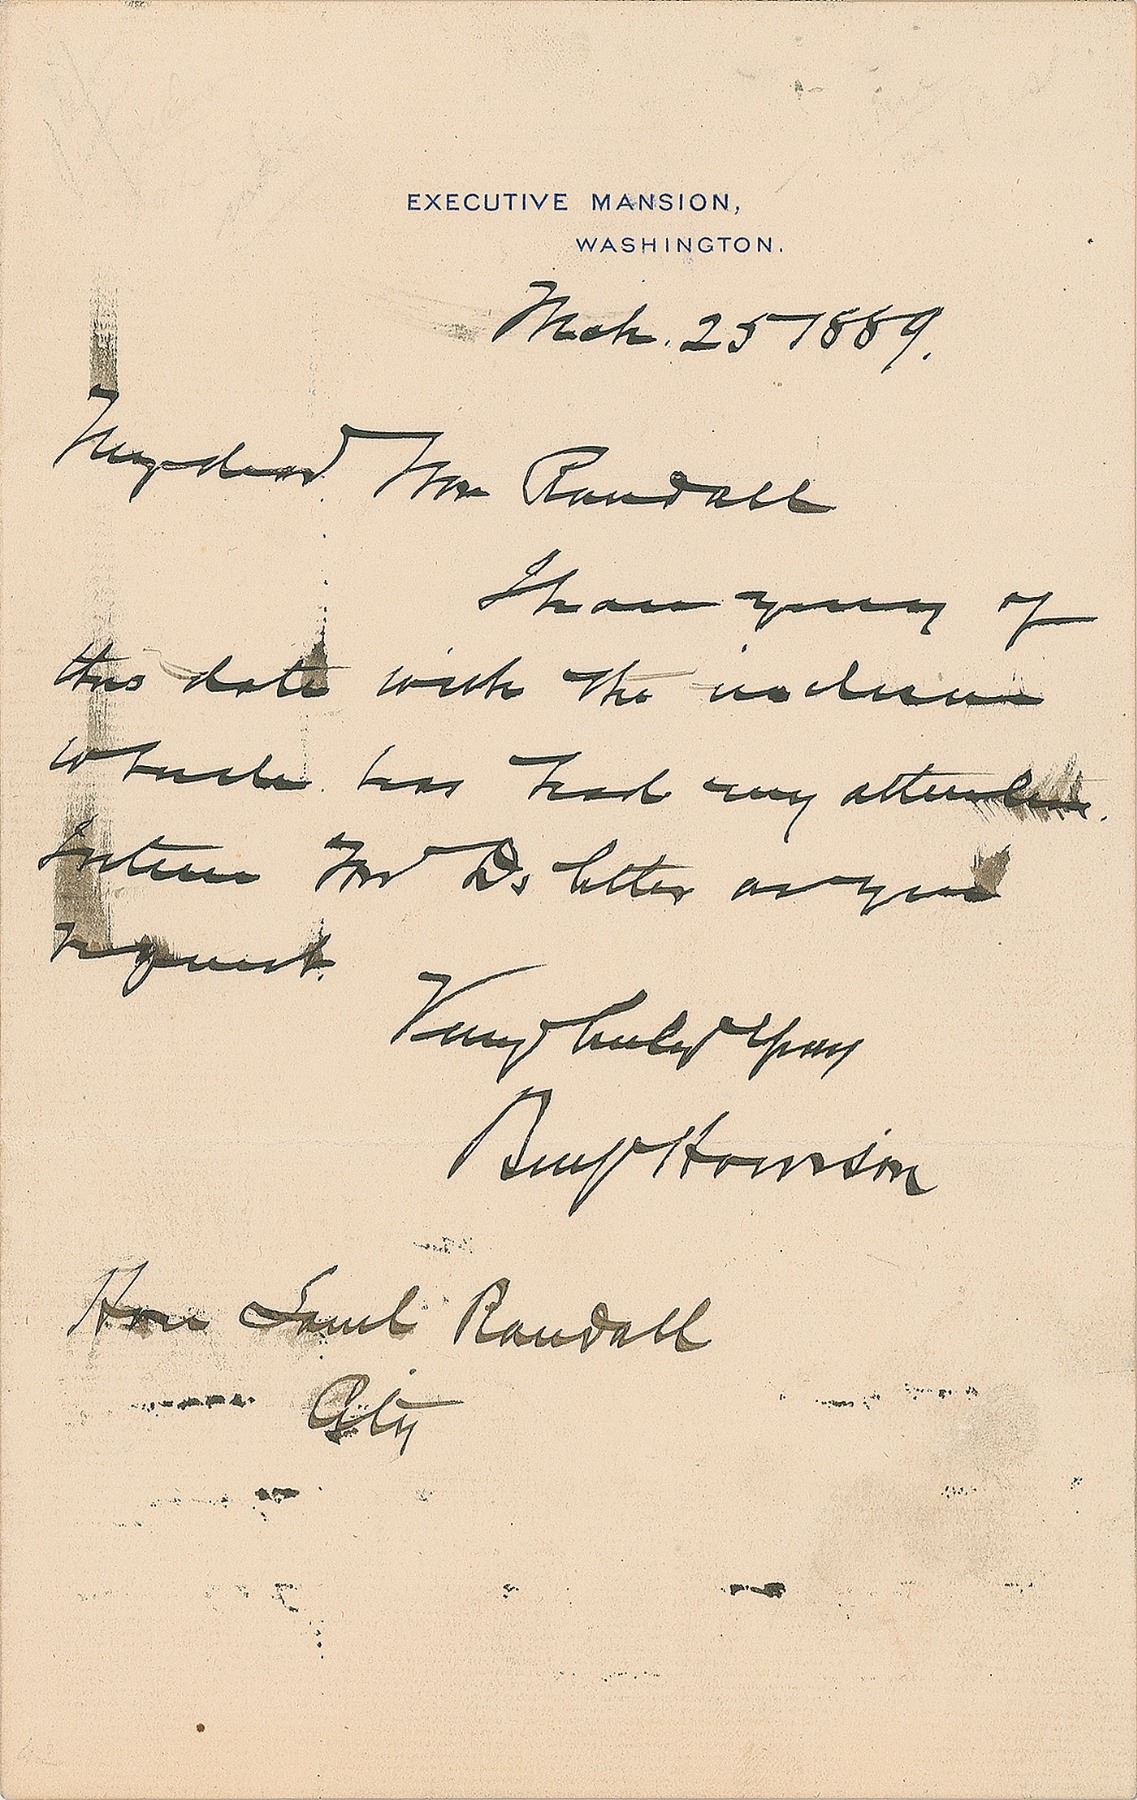 EXECUTIVE MANSION,
WASHINGTON.
Mch. 25 1889.
My dear Mr Randall
I have yours of
this date with the inclosure
which has had my attention.
I return Mr Ds letter as you
request.
Very truly Yours
Benj Harrison
Hon Saml Randall
City